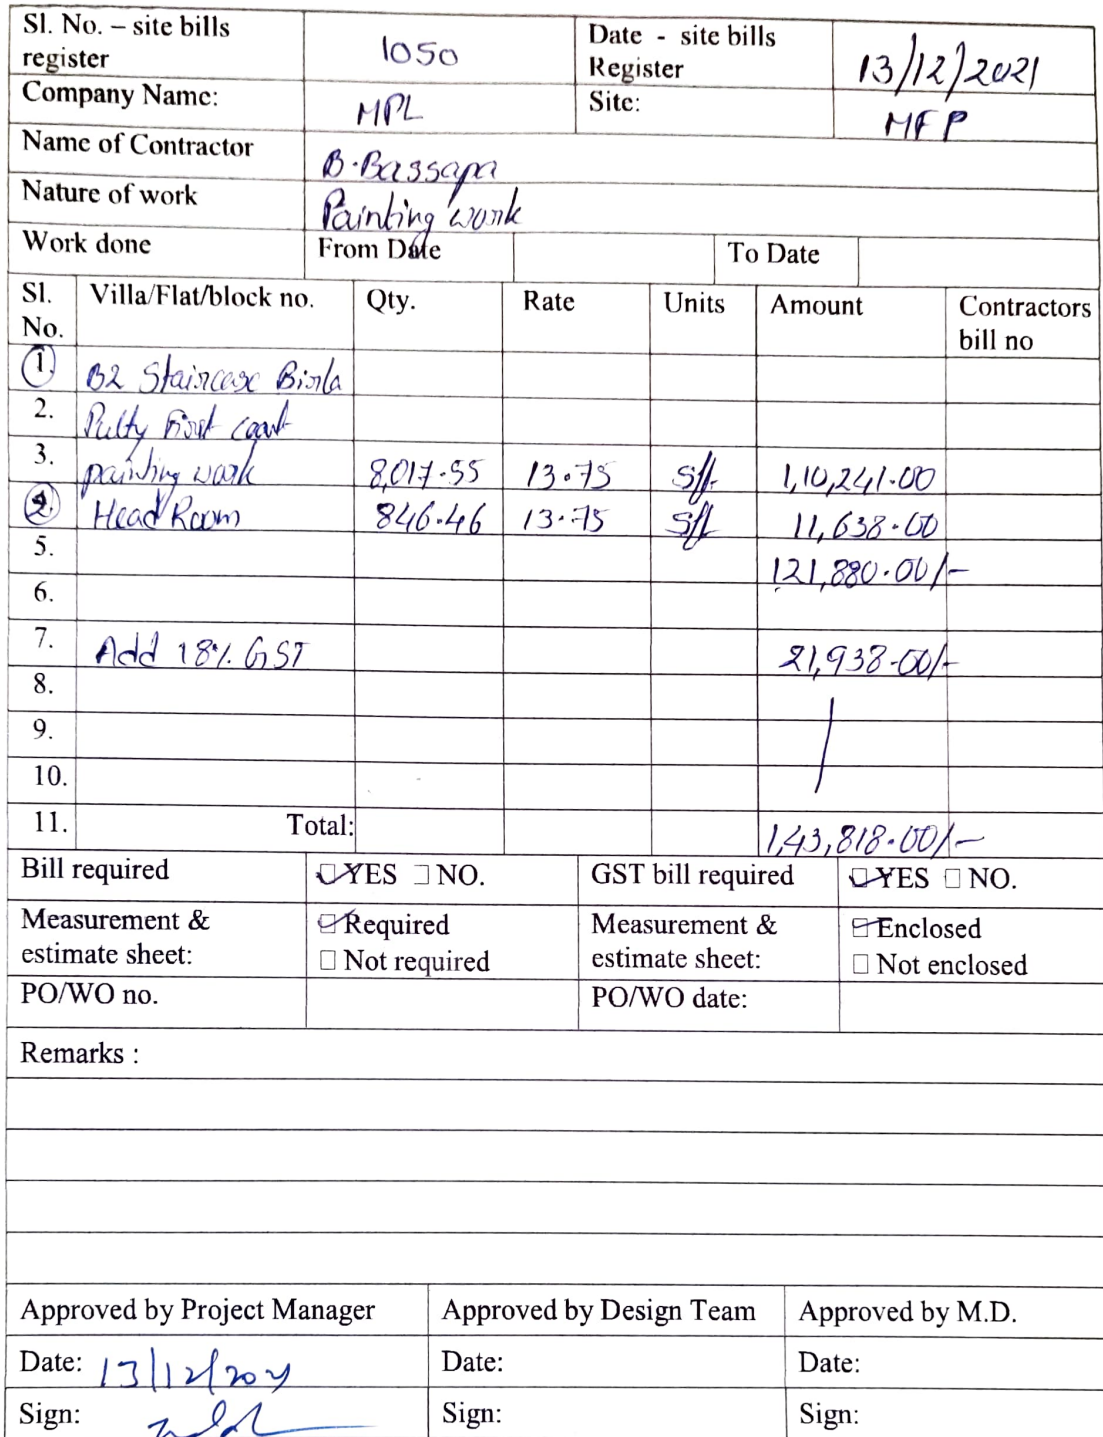 Sl. No. – site bills register 1050 Date - site bills Register 13/12/2021
Company Name: MPL Site: MFP
Name of Contractor B. Bassapa
Nature of work Painting work
Work done From Date To Date
Sl. No. Villa/Flat/block no. Qty. Rate Units Amount Contractors bill no
1. B2 Staircase Birla
2. Putty First coat
3. painting work 8,017.55 13.75 sft 1,10,241.00
2. Head Room 846.46 13.75 sft 11,638.00
5. 121,880.00/-
6.
7. Add 18% GST 21,938.00/-
8.
9.
10.
11. Total: 1,43,818.00/-
Bill required YES NO. GST bill required YES NO.
Measurement & estimate sheet: Required Not required Measurement & estimate sheet: Enclosed Not enclosed
PO/WO no. PO/WO date:
Remarks :
Approved by Project Manager Approved by Design Team Approved by M.D.
Date: 13/12/2021 Date: Date:
Sign: Sign: Sign: